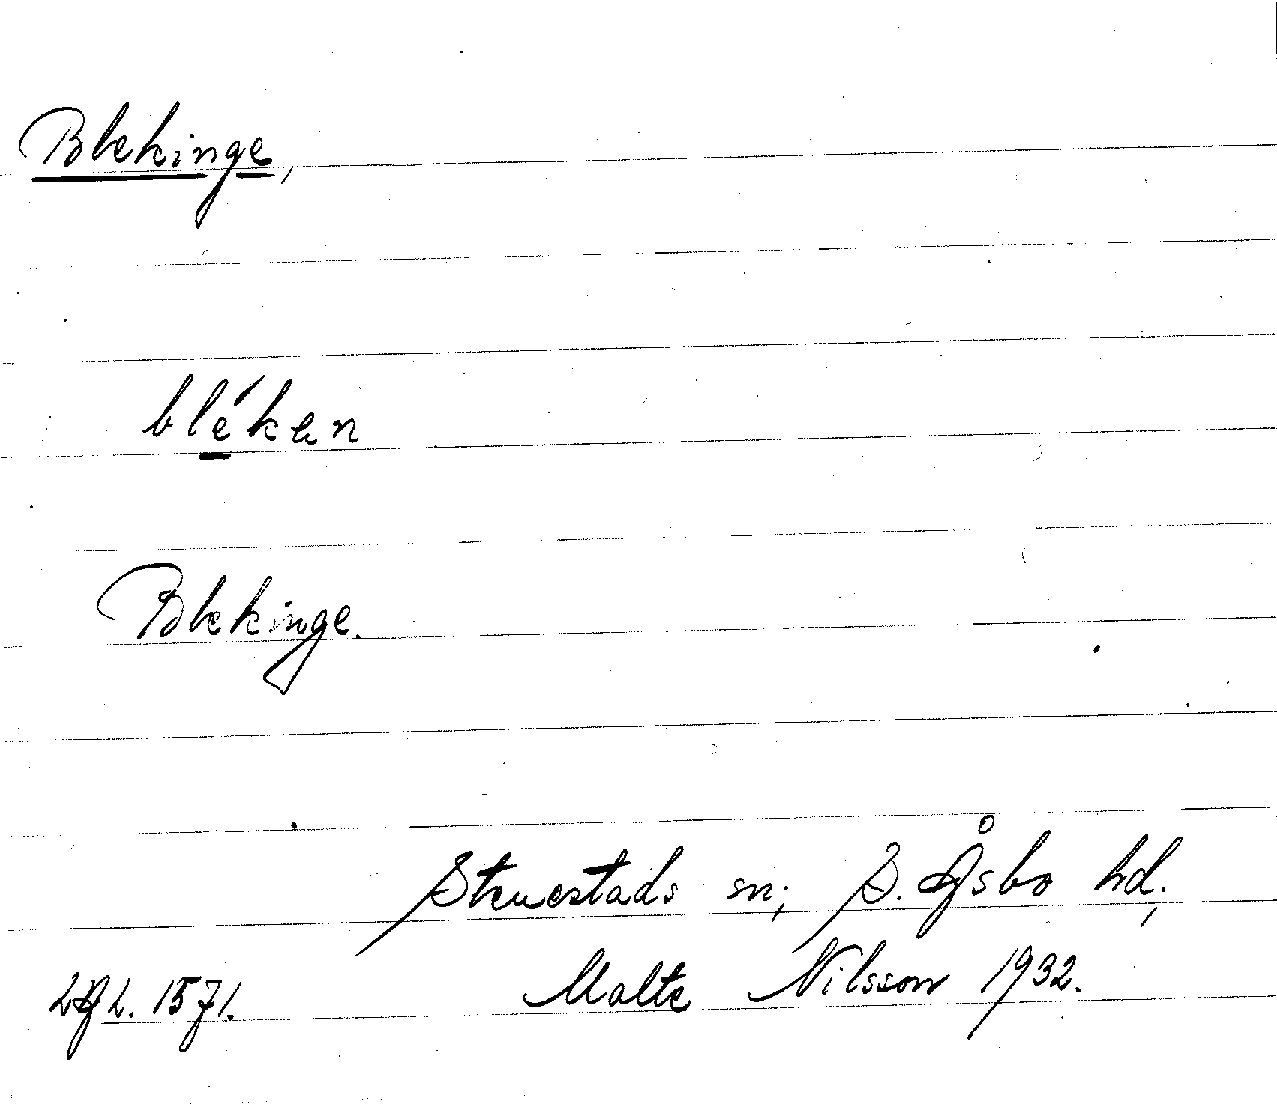 Blekinge,
bléken
Blekinge.
Stenestads sn; S. Åsbo hd.,
Malte Nilsson 1932.
1571.